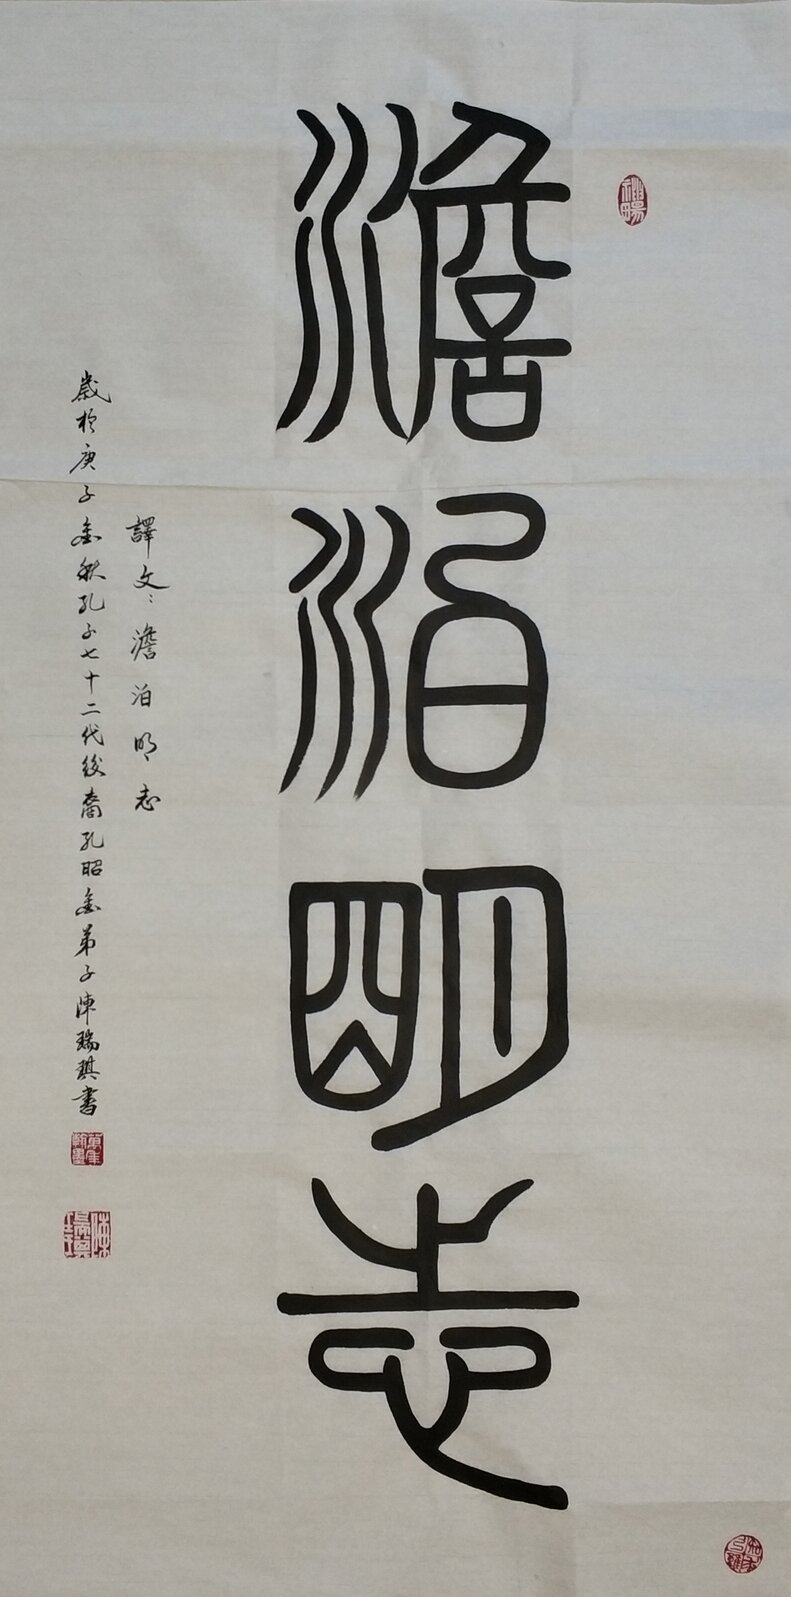 澹泊明志
譯文：澹泊明志
歲於庚子金秋孔子七十二代後裔孔昭金弟子陳瑞琪書